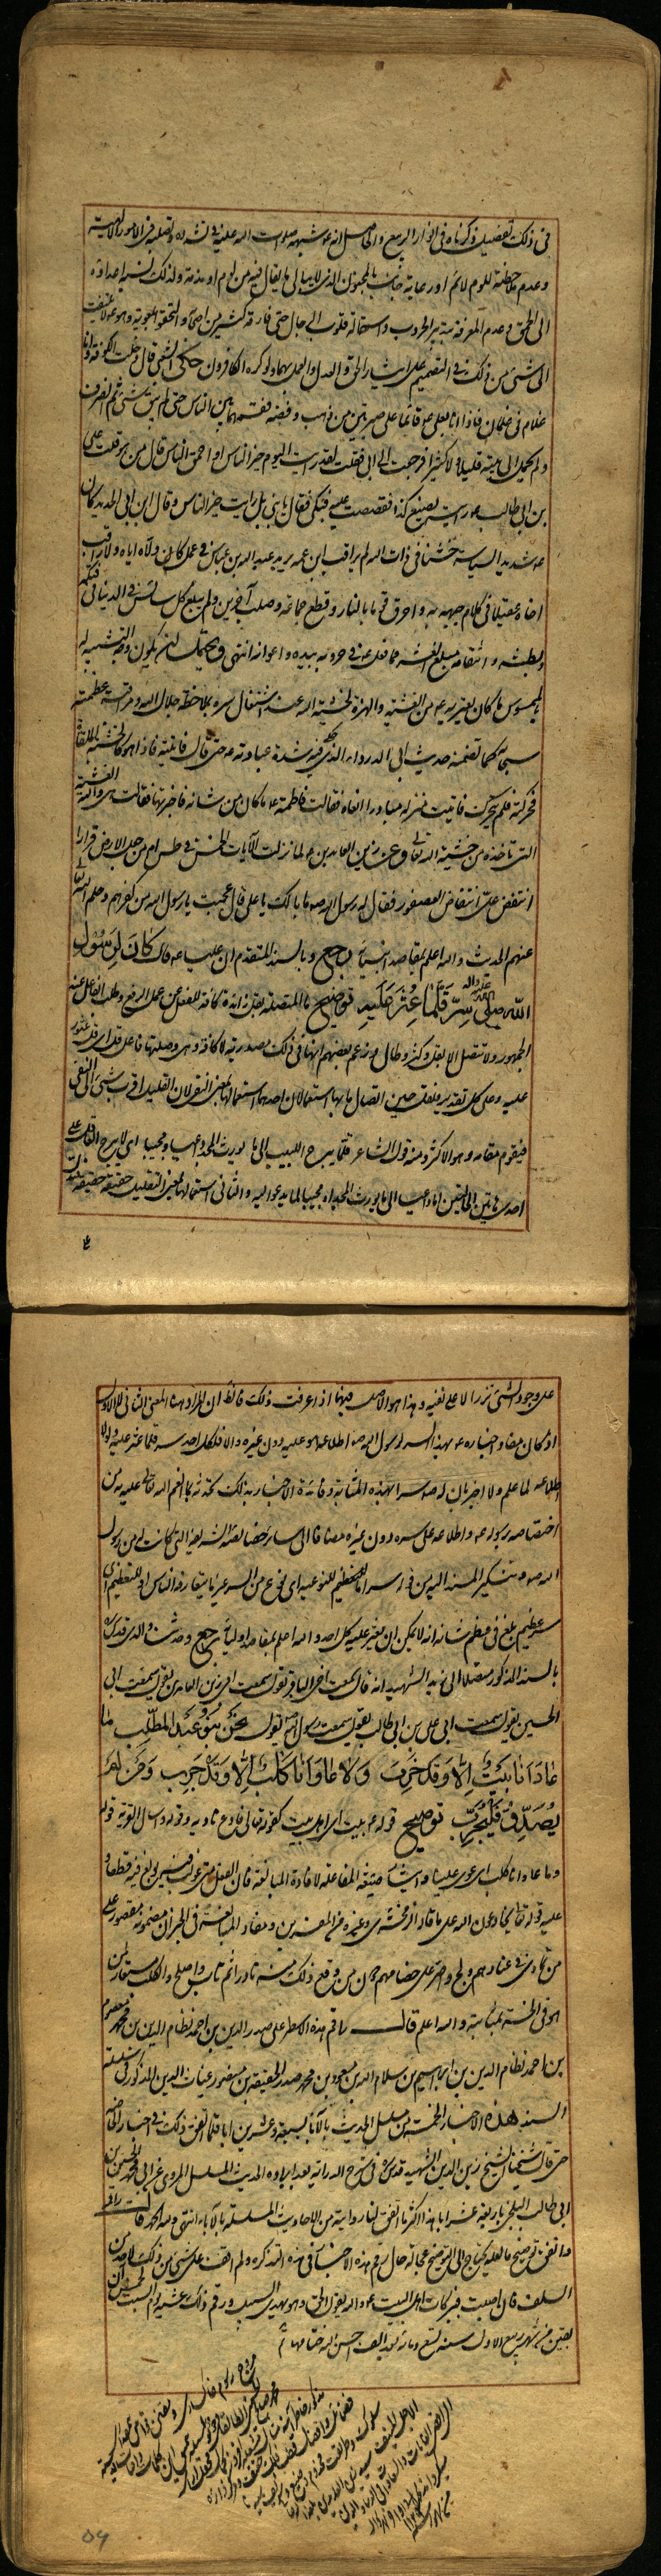 في ذلك تفصيل ذكرناه في انوار الربيع والحاصل انه شبهه صلوات الله عليه في تشدده وتصلبه في الامور الالهية
وعدم ملاحظته للوم لائم اورعاية جانب بالمجنون الذي لا يبالي ما يقال فيه من لوم او مذمة ولذلك نسبه اعداؤه
الى الحمق وعدم المعرفة بتدبير الحروب واستمالة قلوب الرجال حتى فارقه كثير من اصحابه والتحقوا بمعوية وهو لا يلتفت
الى شيء من ذلك في التصميم على ايثار الحق والعدل والعمل بهما ولو كره الكافرون حكى الشعبي قال دخلت الكوفة وانا
غلام في غلمان فاذا انا بعلي ع قائما على صبرتين من ذهب وفضة فقسمها بين الناس حتى لم يبق شيء ثم انصرف
ولم يحمل الى بيته قليلا ولا كثيرا فرجعت الى ابي فقلت لقد رايت اليوم خير الناس او احمق الناس قال من هو قلت علي
بن ابي طالب رايته يصنع كذا فقصصت عليه فبكى فقال يا بني بل رايت خير الناس وقال ابن ابي الحديد كان
ع شديد السياسة خشنا في ذات الله لم يراقب ابن عمه يريد عبد الله بن عباس في عمل كان ولاه اياه ولا راقب
اخاه عقيلا في كلام جبهه به واحرق قوما بالنار وقطع جماعة وصلب آخرين ولم يبلغ كل سائس في الدنيا في فتكه
وبطشه وانتقامه مبلغ العشر مما فعل ع في حروبه بيده واعوانه انتهى ويحتمل ان يكون وجه التشبيه له
بالممسوس ما كان يعتريه ع من الغشية والهزة لخشية الله عند اشتغال سره بملاحظة جلال الله ومراقبة عظمته
سبحانه كما تضمنه حديث ابي الدرداء الذي فيه شدة عبادته ع حتى قال فاتيته فاذا هو كالخشبة الملقاة
فحركته فلم يتحرك فاتيت منزله مبادرا انعاه فقالت فاطمة ع ما كان من شانه فاخبرتها فقالت هي والله الغشية
التي تاخذه من خشية الله تعالى وعن زين العابدين ع لما نزلت الآيات الخمس في طس امن جعل الارض قرارا
انتفض علي انتفاض العصفور فقال له رسول الله ص ما بالك يا علي قال عجبت يا رسول الله من كفرهم وحلم الله تعالى
عنهم الحديث والله اعلم بمقاصد انبيائه رجع وبالسند المتقدم ان عليا ع قال كان لرسول
الله صلى الله عليه واله سر قلما عثر عليه توضيح ما المتصلة بقل زائدة كافة للفعل عن عمل الرفع وطلب الفاعل عند
الجمهور ولا تتصل الا بقل وكثر وطال وزعم بعضهم انها في ذلك مصدرية لا كافة وهي وصلتها فاعل قل اي قل عثور
عليه وعلى كل تقدير ولقل حين اتصال ما بها استعمالان احدهما استعمالها بمعنى النفي لان القليل اقرب شيء الى النفي
فيقوم مقامه وهو الاكثر ومنه قول الشاعر قلما يبرح اللبيب الى ما يورث المجد داعيا ومجيبا اي لا يبرح العاقل على
احدى هاتين الحالتين اما داعيا الى ما يورث المجد او مجيبا لما يدعو اليه والثاني استعمالها بمعنى التقليل حقيقة
على وجود الشيء نزرا لا على نفيه وهذا هو الاصل فيها اذا عرفت ذلك فانظر ان المراد هنا المعنى الثاني لا الاول
اذ كان مفاد اخباره ع بهذا السر لرسول الله ص اطلاعه هو عليه دون غيره والا فلكل احد سر قلما عثر عليه ولولا
اطلاعه لما علم ولا اخبر بان له ص سرا بهذه المثابة وفائدة الاخبار بذلك تحدثه بما انعم الله تعالى عليه من
اختصاصه برسوله ع واطلاعه على سره دون غيره مضافا الى سائر خصائصه الشريفة التي كانت له من رسول
الله ص وتنكير المسند اليه من قوله سر اما للتعظيم للنوعية اي نوع من السر غير ما يتعارفه الناس او للتعظيم اي
سر عظيم بلغ في عظم شانه انه لا يمكن ان يعثر عليه كل احد والله اعلم بمقاصد اوليائه رجع وحدثني والدي قدس سره
بالسند المذكور متصلا الى زيد الشهيد انه قال سمعت اخي الباقر يقول سمعت ابي زين العابدين يقول سمعت ابي
الحسين يقول سمعت ابي علي بن ابي طالب يقول سمعت رسول الله ص يقول نحن بنو عبد المطلب ما
عادانا بيت الا وقد خرب ولا عاوانا كلب الا وقد جرب ومن لم
يصدق فليجرب توضيح قوله ع بيت اي اهل بيت كقوله تعالى فليدع ناديه وقوله واسال القرية قوله
وما عاوانا كلب اي عوى علينا وايثار صيغة المفاعلة لافادة المبالغة فان الفعل متى غولب فيه بولغ فيه قطعا
عليه قوله تعالى يخادعون الله على ما قاله الزمخشري وغيره من المفسرين ومفاد المبالغة في الخبر ان مضمونه مقصور على
من تمادى في عنادهم ولج واصر على خصامهم من وقع ذلك منه نادرا ثم تاب واصلح والكلب مستعار لمن
هو في الخسة بمثابته والله اعلم قال راقم هذه الاسطر علي صدر الدين بن احمد نظام الدين بن محمد معصوم
بن احمد نظام الدين بن ابراهيم بن سلام الله بن مسعود بن محمد صدر الحقيقة بن منصور غياث الدين المذكور في سلسلة
السند هذه الاخبار الخمسة من مسلسل الحديث بالآباء بسبعة وعشرين ابا قلما اتفق ذلك في اخبار الخاصة
حتى قال شيخنا الشيخ زين الدين الشهيد قدس سره في شرح الدراية بعد ايراده الحديث المسلسل المروي عن ابي محمد الحسن بن
ابي طالب البلخي باربعة عشر ابا هذا اكثر ما اتفق لنا روايته من الاحاديث المسلسلة بالآباء انتهى ولله الحمد قال راقمه
واتفق توضيح ما لعله يحتاج الى التوضيح عجالة حال رقم هذه الاخبار في هذه التذكرة ولم اقف على شيء من ذلك لاحد من
السلف فان اصبت فببركات اهل البيت ع والله يقول الحق وهو يهدي السبيل ورقم ذلك عشية يوم السبت لخمس ان
بقين من شهر ربيع الاول سنة تسع ومائة والف احسن الله ختامها